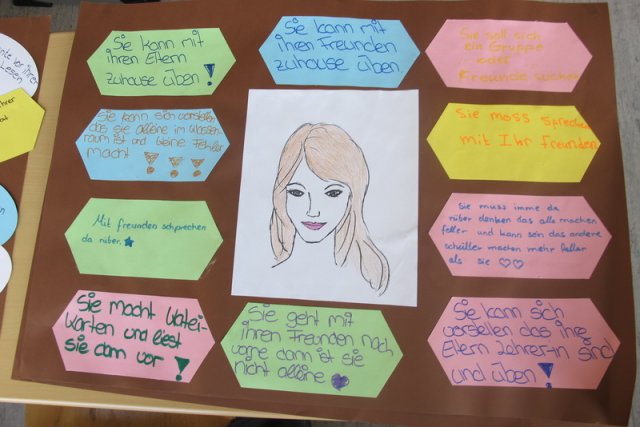 Sie kann mit
ihren Eltern
zuhause üben!
Sie kann mit
ihren Freunden
zuhause üben.
Sie soll sich
ein Gruppe
oder
Freunde suchen
Sie kann sich vorstellen
das sie alleine im Klassen-
raum ist und keine Fehler
macht !!!
Sie moss sprechen
mit Ihr Freunden
Mit freunden schprechen
da rüber.
Sie muss imme da
rüber denken das alle machen
feller und kann sein das andere
schüller machen mehr feller
als sie ♡♡
Sie macht Katei-
Karten und liest
sie dann vor!
Sie geht mit
ihren Freunden nach
vorne dann ist sie
nicht alleine
Sie kann sich
vorstellen das ihre
Eltern Lehrer-in sind
und üben!
nte vor ihrer
Lesen